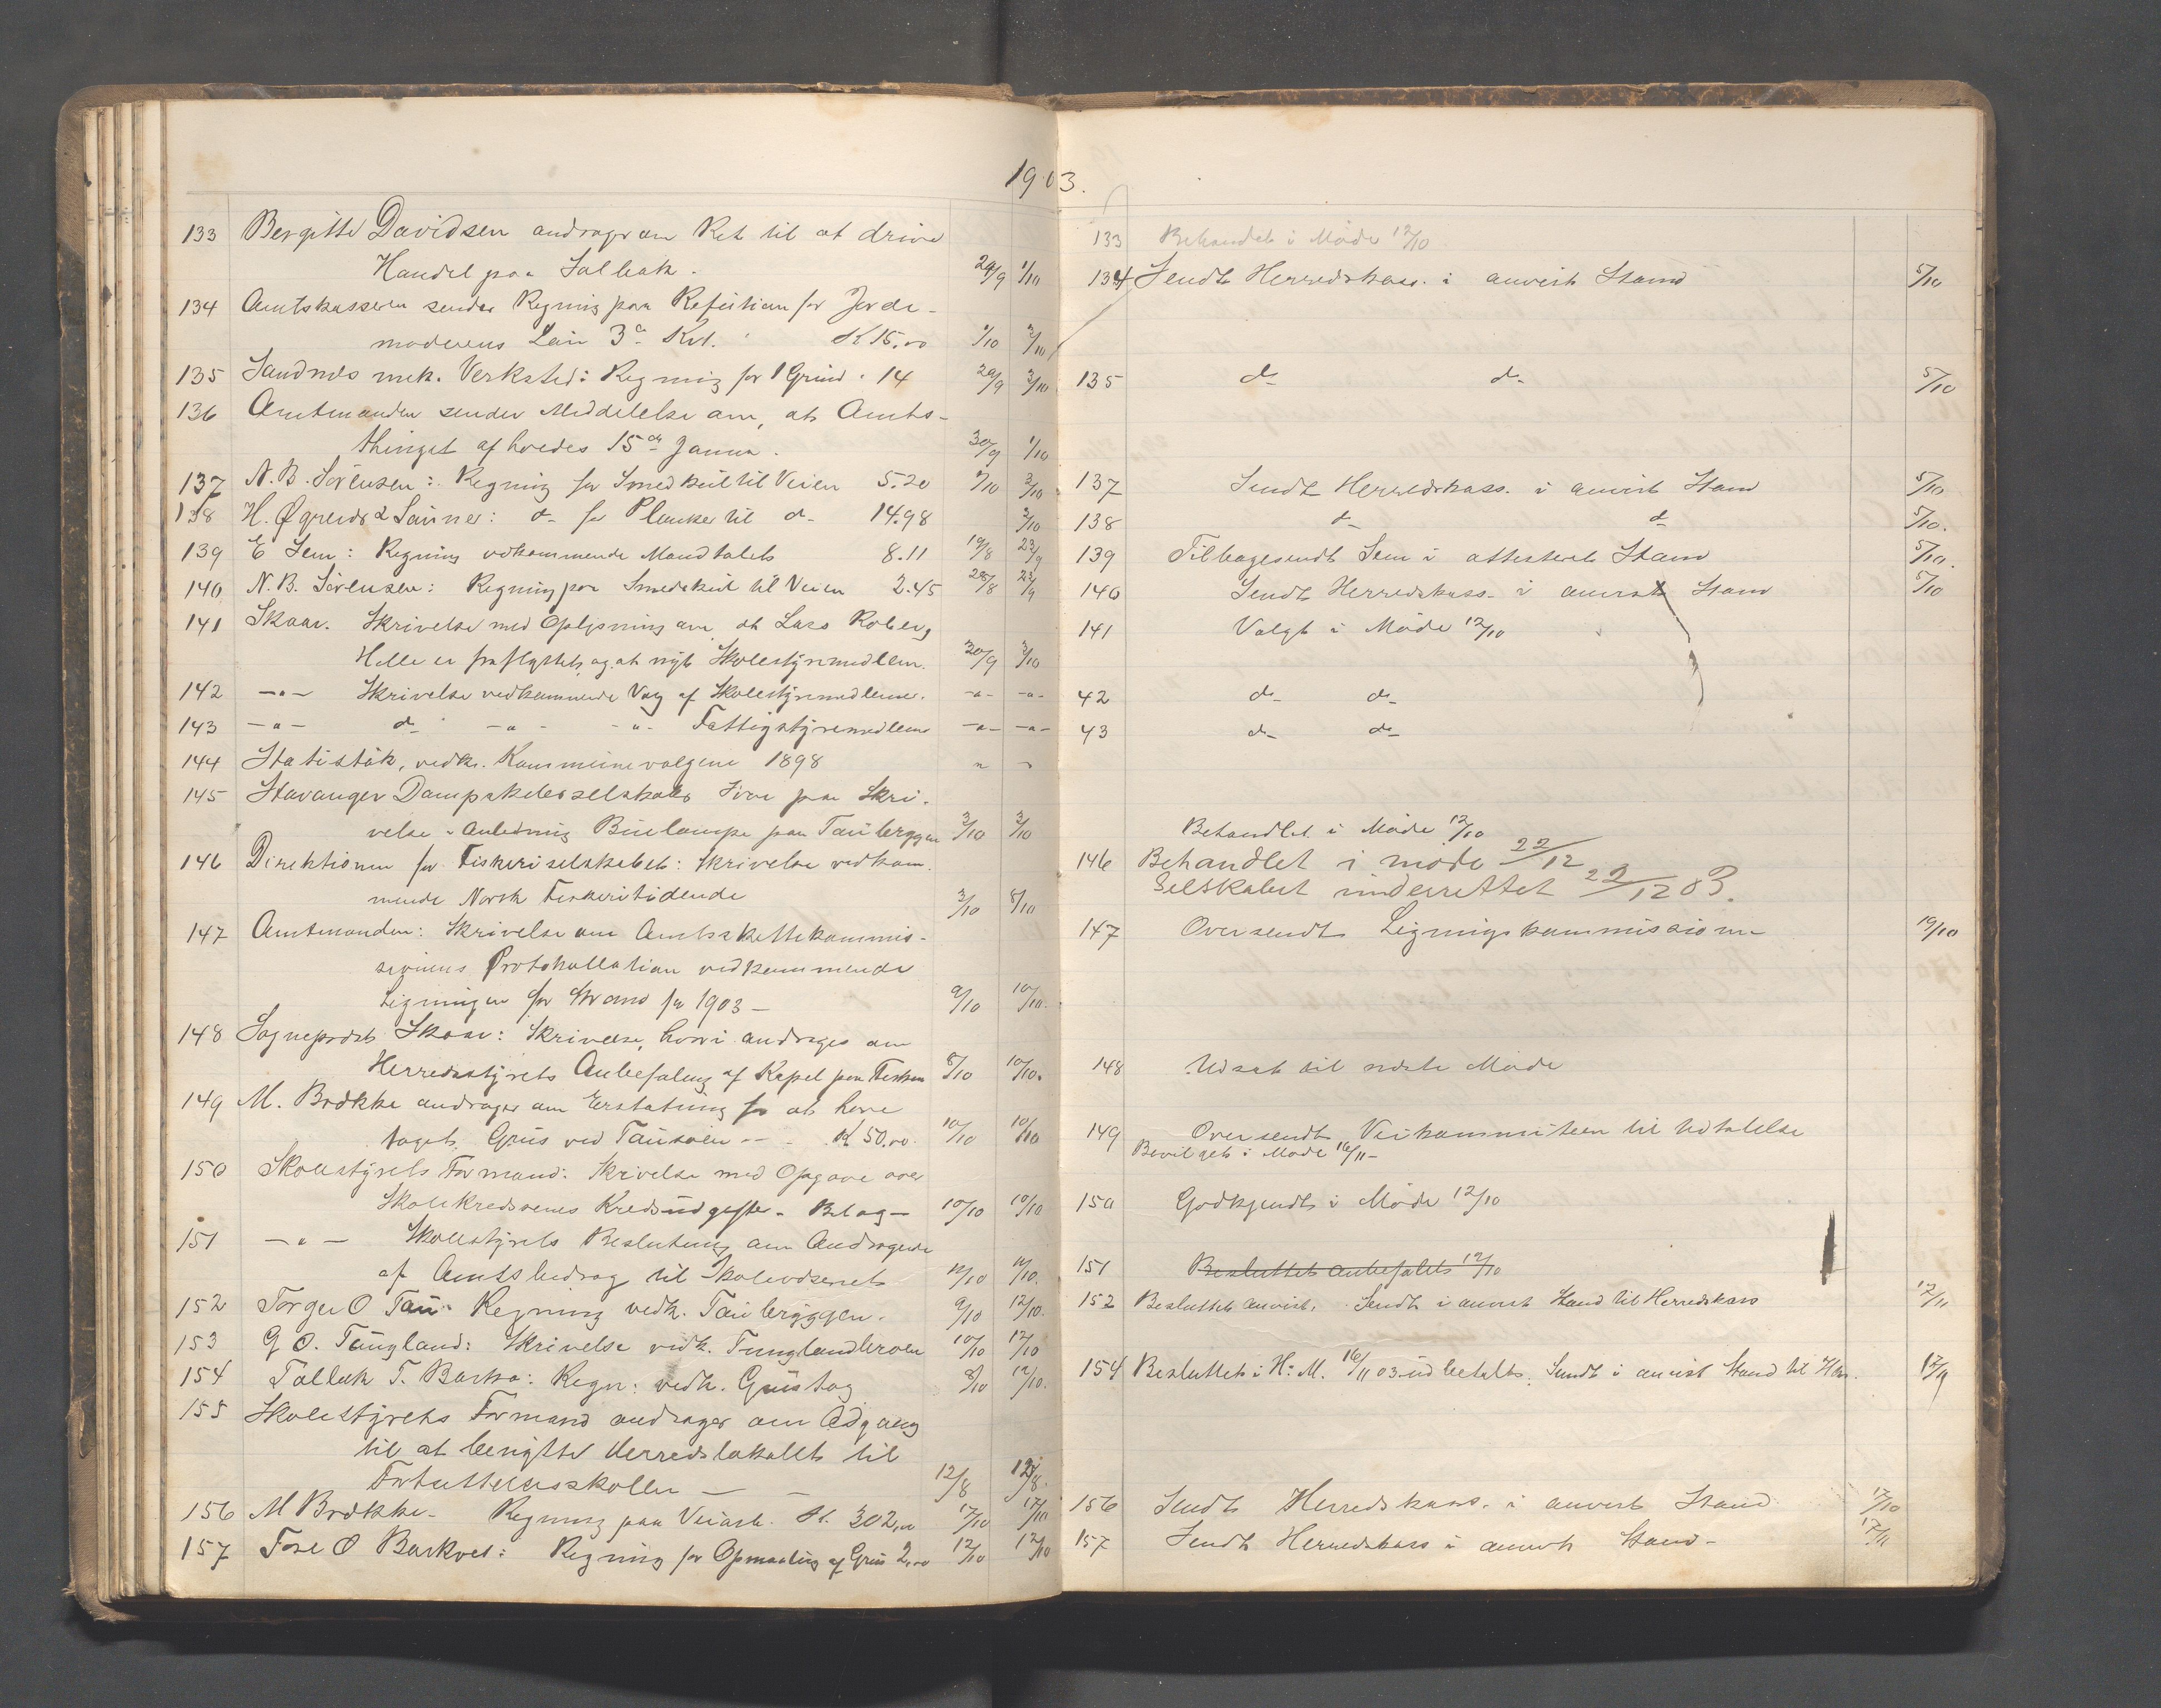 1903.
133 Bergitte Davidsen andrager om Ret til at drive
Handel paa Solbak. 29/9 1/10
134 Amtskasseren sender Regning paa Refusion for Jorde-
moderens Løn 3die Kvt. K 15.00 1/10 3/10
135 Sandnes mek. Verksted: Regning for 1 Grind. 14 29/9 3/10
136 Amtmanden sender Meddelelse om, at Amts-
thinget afholdes 15de Januar. 30/9 1/10
137 N. B. Sørensen: Regning for Smedkul til Veien 5.20 1/10 3/10
138 H. Øgreids Sønner: do for Planker til do 14.98 3/10
139 E Sem: Regning vedkommende Mandtalet 8.11 19/8 23/9
140 N. B. Sørensen: Regning paa Smedekul til Veien 2.45 28/8 23/9
141 Skaar. Skrivelse med Oplysning om at Lars Roberg
Helle er fraflyttet, og at nyt Skolestyremedlem. 30/9 3/10
142 -"- Skrivelse vedkommende Valg af Skolestyremedlemer. -"- -"-
143 -"- do -"- -"- Fattigstyremedlem -"- -"-
144 Statistik, vedk. Kommunevalgene 1898 " "
145 Stavanger Dampskibsselskabs Svar paa Skri-
velse i Anledning Buelampe paa Taubryggen 3/10 3/10
146 Direktionen for Fiskeriselskabet: Skrivelse vedkom-
mende Norsk Fiskeritidende 3/10 8/10
147 Amtmanden: Skrivelse om Amtsskattekommis-
sionens Protokollation vedkommende
Ligningen for Strand for 1903 — 9/10 10/10.
148 Sogneprest Skaar: Skrivelse, hvori andrages om
Herredsstyrets Anbefaling af Kapel paa 8/10 10/10.
149 M. Brække andrager om Erstatning for at have
taget Grus ved Tausøen — K 50.00. 10/10 10/10
150 Skolestyrets Formand: Skrivelse med Opgave over
Skolekredsenes Kredsudgifter - Belag — 10/10 10/10
151 -"- Skolestyrets Beslutning om Andragende
af Amtsbidrag til Skolevæsenet 10/10
152 Torger O Tau. Regning vedk. Taubryggen. 9/10 12/10.
153 G O. Tungland: Skrivelse vedk. Tunglandbroen 10/10 12/10
154 Tollak T. Barka: Regn: vedk. Grustag 8/10 12/10.
155 Skolestyrets Formand andrager om Adgang
til at benytte Herredslokalet til
Fortsættelsesskolen — — 12/8 12/8.
156 M Brække - Regning paa Veiarb. K. 302.00 17/10 17/10
157 Tore O Barkved: Regning for Opmaaling af Grus 2.00 12/10 12/10
133 Behandlet i Møde 12/10
134 Sendt Herredskass. i anvist Stand 5/10
135 do do 5/10
137 Sendt Herredskass. i anvist Stand 5/10
138 do do 5/10.
139 Tilbagesendt Sem i attesteret Stand 5/10.
140 Sendt Herredskass. i anvist Stand 5/10
141 Valgt i Møde 12/10
42 do do
43 do do
Behandlet i Møde 12/10
146 Behandlet i møde 22/12
Selskabet underrettet 22/12 03.
147 Oversendt Ligningskommissionen 19/10
148 Udsat til næste Møde
149 Oversendt Veikommiteen til Udtalelse
Bevilget i Møde 16/11 -
150 Godkjendt i Møde 12/10
151 Besluttet anbefalet 12/10
152 Besluttet anvist. Sendt i anvist Stand til Herredskass 17/11
154 Besluttet i H. M. 16/11 03 udbetalt. Sendt i anvist Stand til
156 Sendt Herredskass. i anvist Stand 17/10
157 Sendt Herredskass i anvist Stand - 17/11